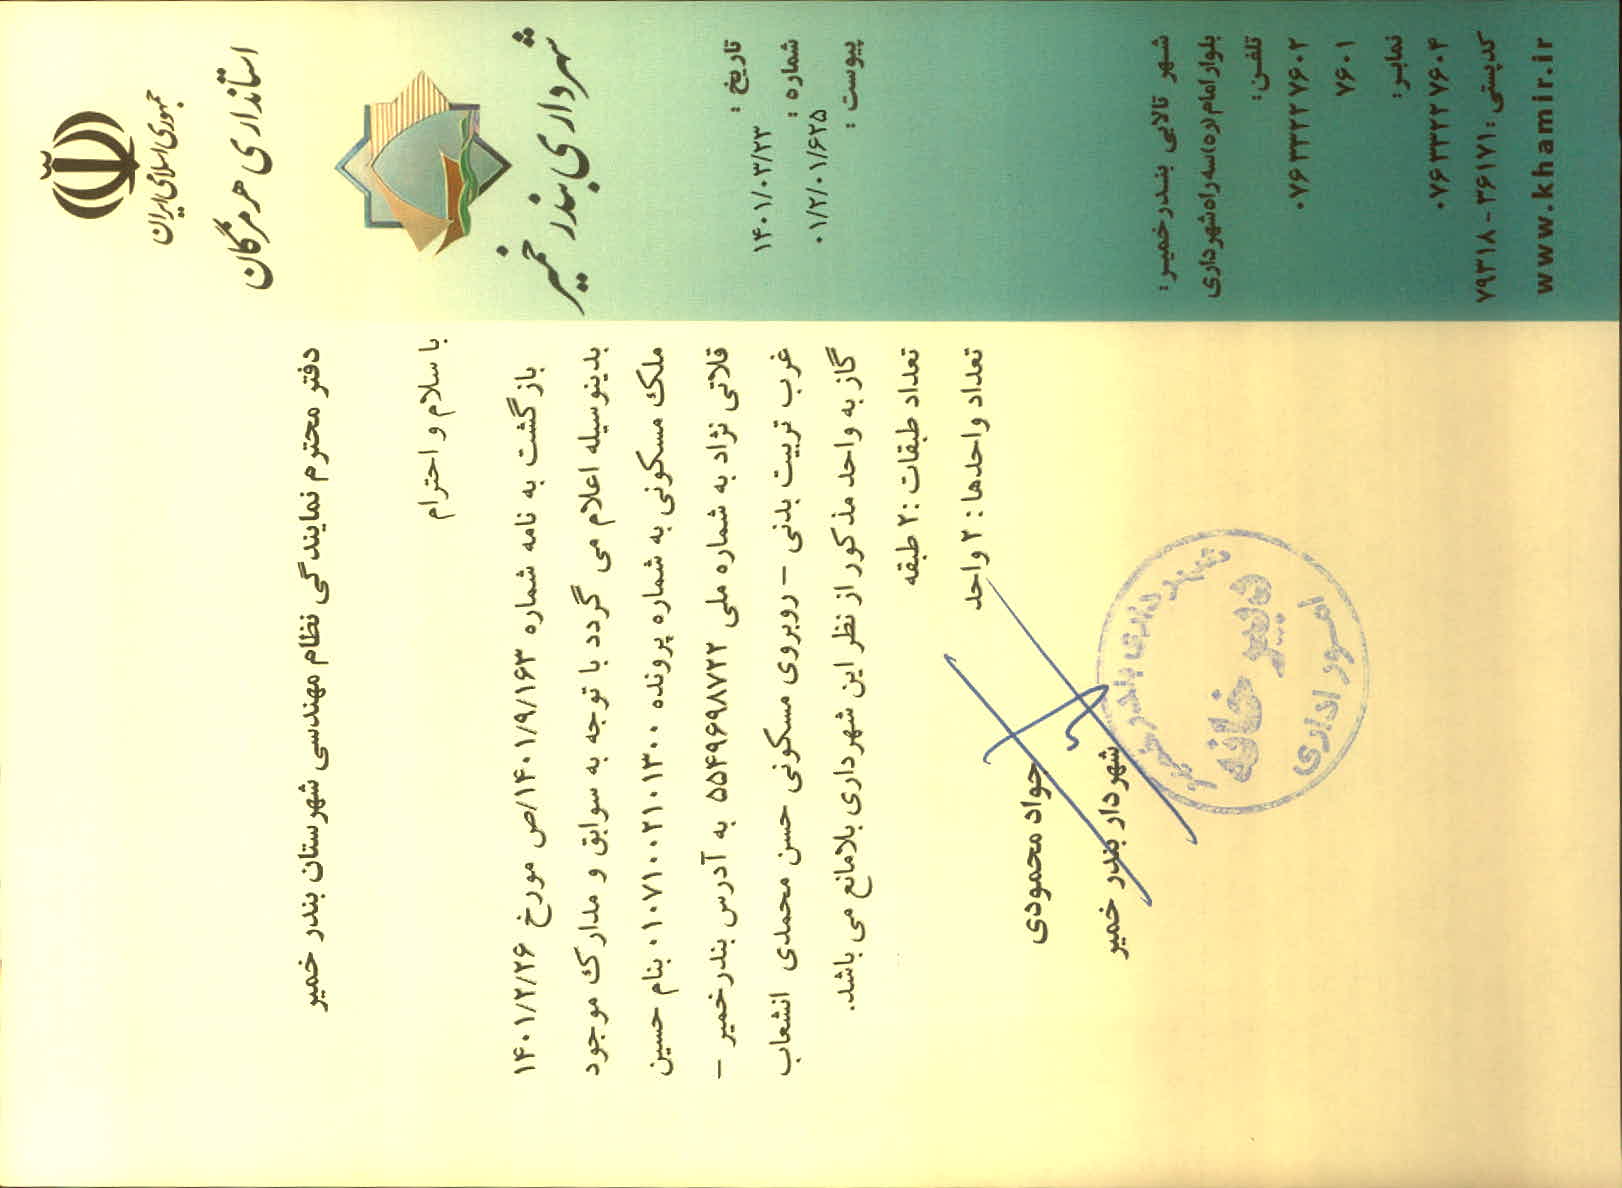 جمهوری اسلامی ایران
استانداری هرمزگان
شهرداری بندر خمیر
تاریخ :
۱۴۰۱/۰۳/۲۳
شماره :
۰۱/۲/۰۱/۶۲۵
پیوست :
دفتر محترم نمایندگی نظام مهندسی شهرستان بندر خمیر
با سلام و احترام
بازگشت به نامه شماره ۱۴۰۱/۹/۱۶۳/ص مورخ ۱۴۰۱/۲/۲۶
بدینوسیله اعلام می گردد با توجه به سوابق و مدارک موجود
ملک مسکونی به شماره پرونده ۰۱۰۷۱۰۰۲۱۰۱۳۰۰ بنام حسین
قلاتی نژاد به شماره ملی ۵۵۴۹۶۹۸۷۲۲ به آدرس بندرخمیر –
غرب تربیت بدنی – روبروی مسکونی حسن محمدی انشعاب
گاز به واحد مذکور از نظر این شهرداری بلامانع می باشد.
تعداد طبقات :۲ طبقه
تعداد واحدها : ۲ واحد
جواد محمودی
شهردار بندر خمیر
شهرداری بندر خمیر
دبیرخانه
امور اداری
شهر تالابی بندرخمیر:
بلوار امام (ره) سه راه شهرداری
تلفن:
۰۷۶۳۳۲۲۷۶۰۲
۷۶۰۱
نمابر:
۰۷۶۳۳۲۲۷۶۰۴
کدپستی : ۳۶۱۷۱ - ۷۹۳۱۸
www.khamir.ir